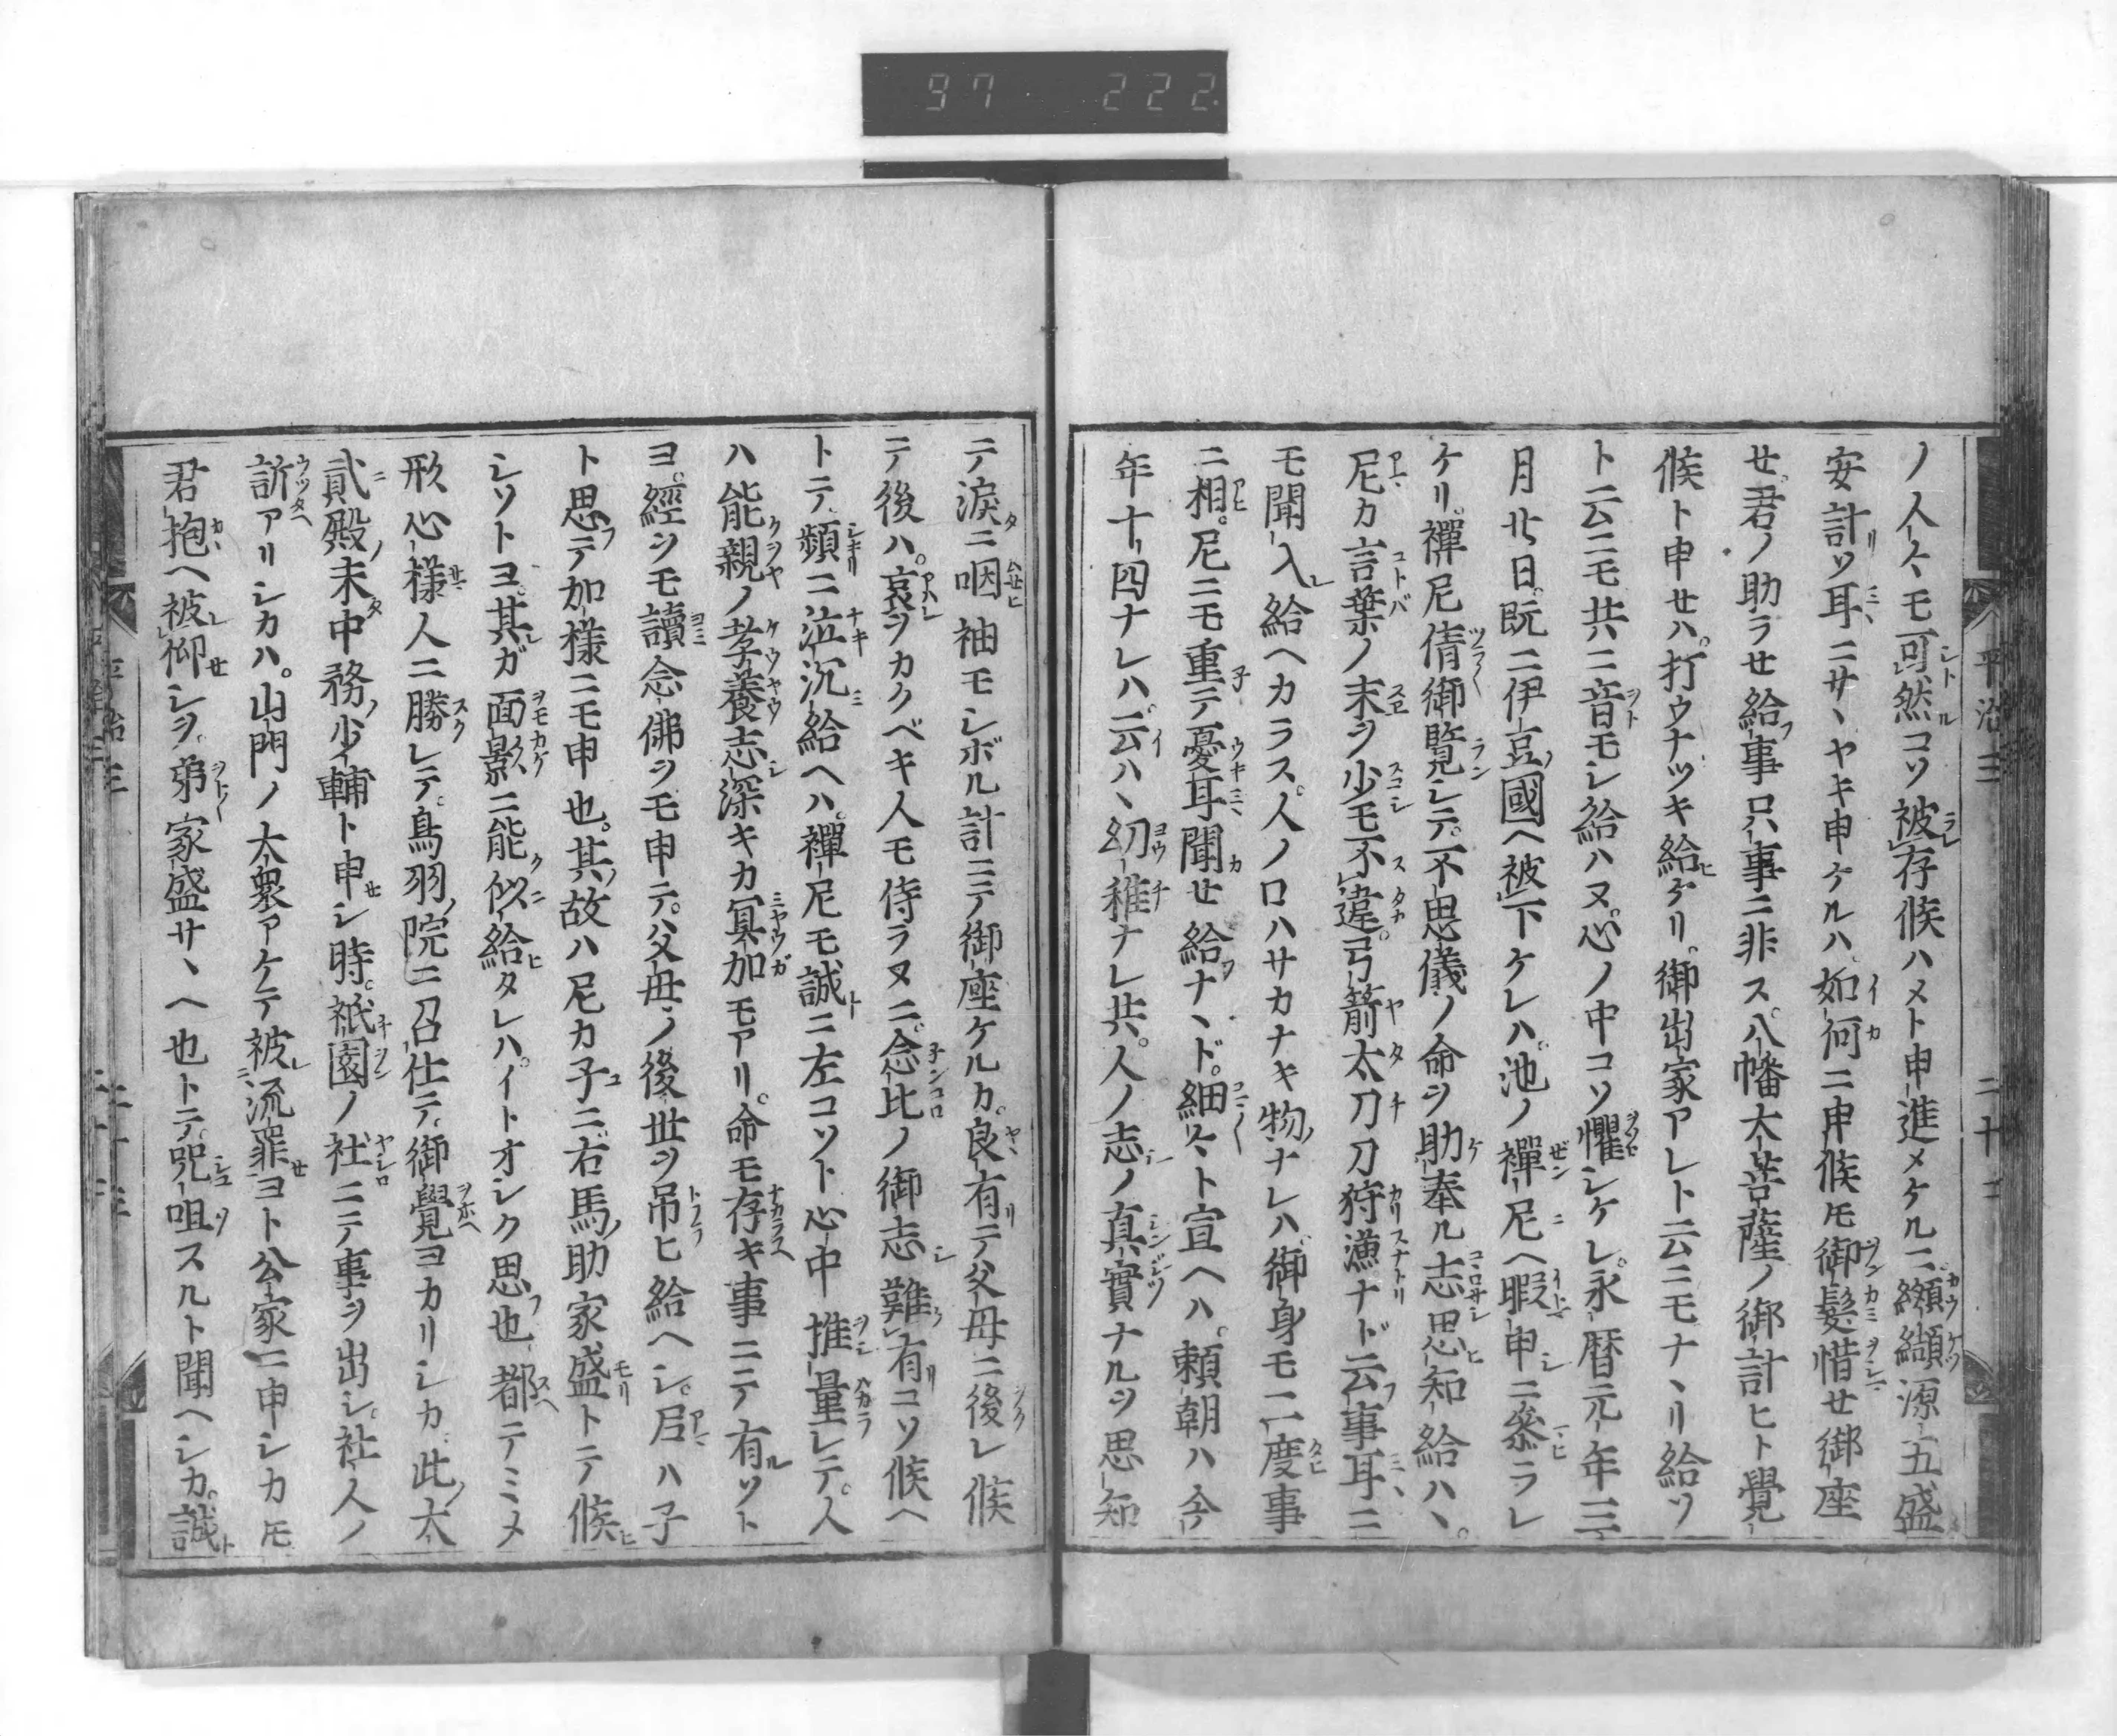 97 222
平治三
二十二
ノ人々モ可然コソ被存候ハメト申進メケルニ纐纈源五盛
安計ソ耳ニサヽヤキ申ケルハ如何ニ申候モ御髪惜セ御座
セ君ノ助ラセ給事只事ニ非ス八幡大菩薩ノ御計ヒト覺
候ト申セハ打ウナツキ給ケリ御出家アレト云ニモナヽリ給ソ
ト云ニモ共ニ音モシ給ハヌ心ノ中コソ懼シケレ永暦元年三
月廿日既ニ伊豆國ヘ被下ケレハ池ノ禪尼ヘ暇申ニ參ラレ
ケリ禪尼倩御覽シテ不思儀ノ命ヲ助奉ル志思知給ハヽ
尼カ言葉ノ末ヲ少モ不違弓箭太刀刀狩漁ナド云事耳ニ
モ聞入給ヘカラス人ノ口ハサカナキ物ナレハ御身モ二度事
ニ相尼ニモ重テ憂耳聞せ給ナヽド細々ト宣ヘハ頼朝ハ今
年十四ナレハ云ハヽ幼稚ナレ共人ノ志ノ真實ナルヲ思知
テ涙ニ咽袖モシボル計ニテ御座ケルカ良有テ父母ニ後レ候
テ後ハ哀ヲカクベキ人モ侍ラヌニ念比ノ御志難有コソ候ヘ
トテ頻ニ泣沉給ヘハ禪尼モ誠ニ左コソト心中推量シテ人
ハ能親ノ孝養志深キカ冥加モアリ命モ存キ事ニテ有ソト
ヨ經ヲモ讀念佛ヲモ申テ父母ノ後世ヲ吊ヒ給ヘシ尼ハ子
ト思テ加樣ニモ申也其故ハ尼カ子ニ右馬助家盛トテ候
シソトヨ其ガ面影ニ能似給タレハイトオシク思也都テミメ
形心樣人ニ勝レテ鳥羽院ニ召仕テ御覺ヨカリシカ此太
貳殿未中務少輔ト申シ時祇園ノ社ニテ事ヲ出シ社人ノ
訴アリシカハ山門ノ大衆アケテ被流罪ヨト公家ニ申シカモ
君抱ヘ被仰シヲ弟家盛サヽヘ也トテ咒咀スルト聞ヘシカ誠